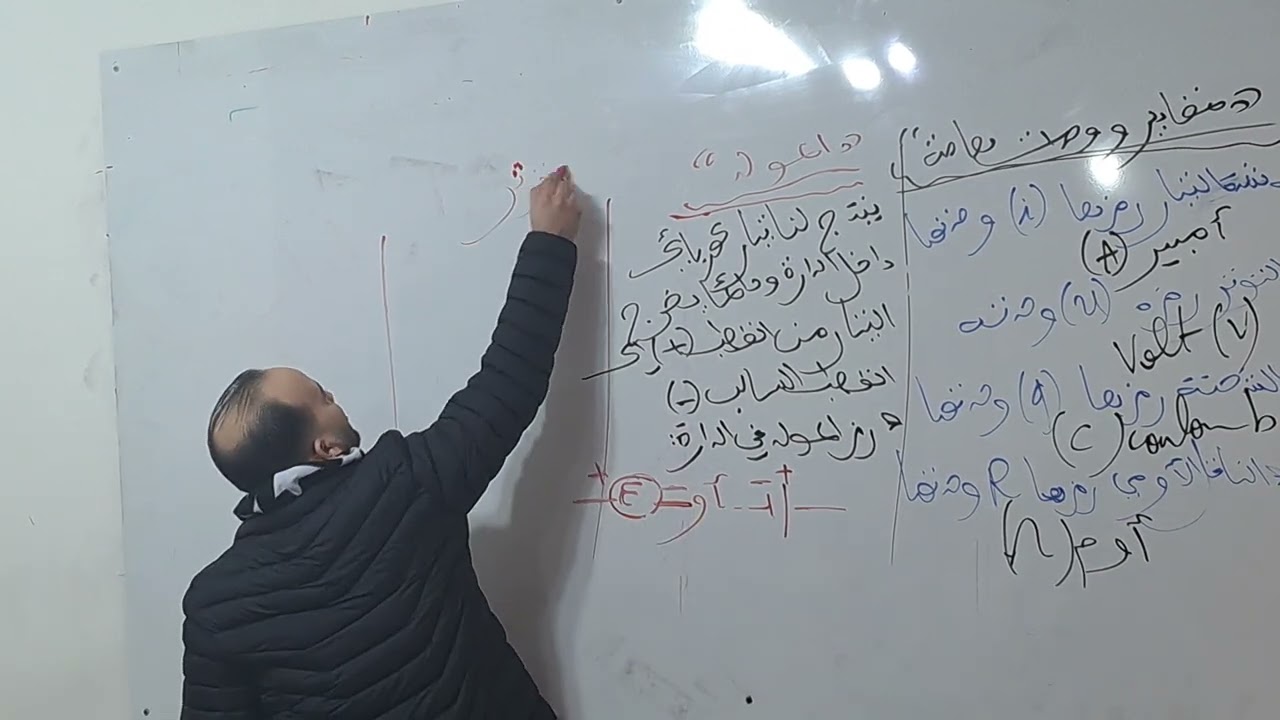 مقادير ووحدات خاصة
شدة التيار رمزها (i) وحدتها
أمبير (A)
التوتر رمزه (U) وحدته
Volt (V)
الشحنة رمزها (q) وحدتها
(C) coulomb
الناقل الأومي رمزها R وحدتها
أوم (Ω)
المولد
ينتج لنا تيار كهربائي
داخل الدارة ودائما يخرج
التيار من القطب (+) إلى
القطب السالب (-)
رمز المولد في الدارة:
+ E - أو - +